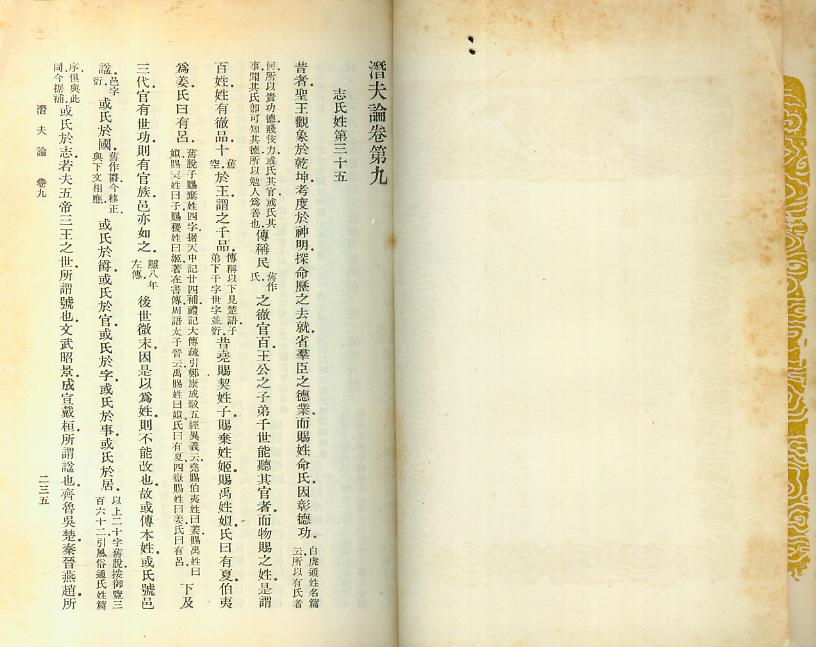 潛夫論卷第九
志氏姓第三十五
昔者聖王觀象於乾坤。考度於神明。探命歷之去就。省羣臣之德業。而賜姓命氏。因彰德功。白虎通姓名篇云。所以有氏者
何。所以貴功德。賤伎力。或氏其官。或氏其事。聞其氏卽可知其德。所以勉人爲善也。傳稱民舊作氏。之徹官百。王公之子弟千世能聽其官者。而物賜之姓。是謂
百姓。姓有徹品十舊空。於王。謂之千品。傳稱以下見楚語。子弟下千字世字並衍。昔堯賜契姓子。賜棄姓姬。賜禹姓姒。氏曰有夏。伯夷
爲姜。氏曰有呂。舊脫子賜棄姓四字。據天中記廿四補。禮記大傳疏引鄭康成駁五經異義云。堯賜伯夷姓曰姜。賜禹姓曰姒。賜契姓曰子。賜稷姓曰姬。著在書傳。周語太子晉云。禹賜姓曰姒。氏曰有夏。四嶽賜姓曰姜。氏曰有呂。下及
三代。官有世功。則有官族。邑亦如之。隱八年左傳。後世微末。因是以爲姓。則不能改也。故或傳本姓。或氏號邑
諡。邑字衍。或氏於國。舊作爵今移正。與下文相應。或氏於爵。或氏於官。或氏於字。或氏於事。或氏於居。以上二十字舊脫。按御覽三百六十二引風俗通氏姓篇
序。俱與此同。今據補。或氏於志。若夫五帝三王之世。所謂號也。文武昭景成宣戴桓。所謂諡也。齊魯吳楚秦晉燕趙。所
潛夫論 卷九
二三五